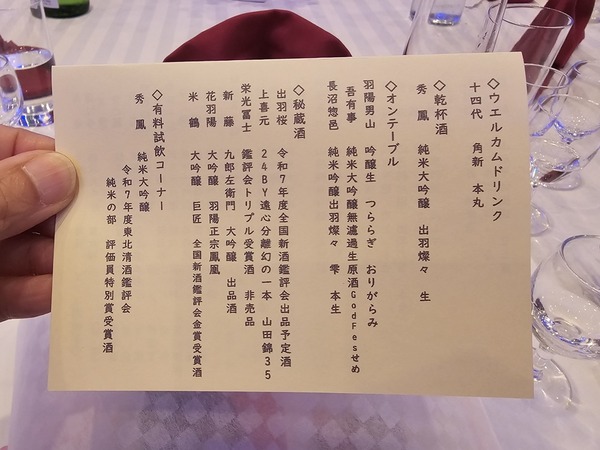 ◇ウエルカムドリンク
十四代 角新 本丸
◇乾杯酒
秀鳳 純米大吟醸 出羽燦々 生
◇オンテーブル
羽陽男山 吟醸生 つららぎ おりがらみ
吾有事 純米大吟醸無濾過生原酒GodFesせめ
長沼惣邑 純米吟醸出羽燦々 雫 本生
◇秘蔵酒
出羽桜 令和7年度全国新酒鑑評会出品予定酒
上喜元 24BY遠心分離幻の一本 山田錦35
栄光冨士 鑑評会トリプル受賞酒 非売品
新藤 九郎左衛門 大吟醸 出品酒
花羽陽 大吟醸 羽陽正宗鳳凰
米鶴 大吟醸 巨匠 全国新酒鑑評会金賞受賞酒
◇有料試飲コーナー
秀鳳 純米大吟醸
令和7年度東北清酒鑑評会
純米の部 評価員特別賞受賞酒